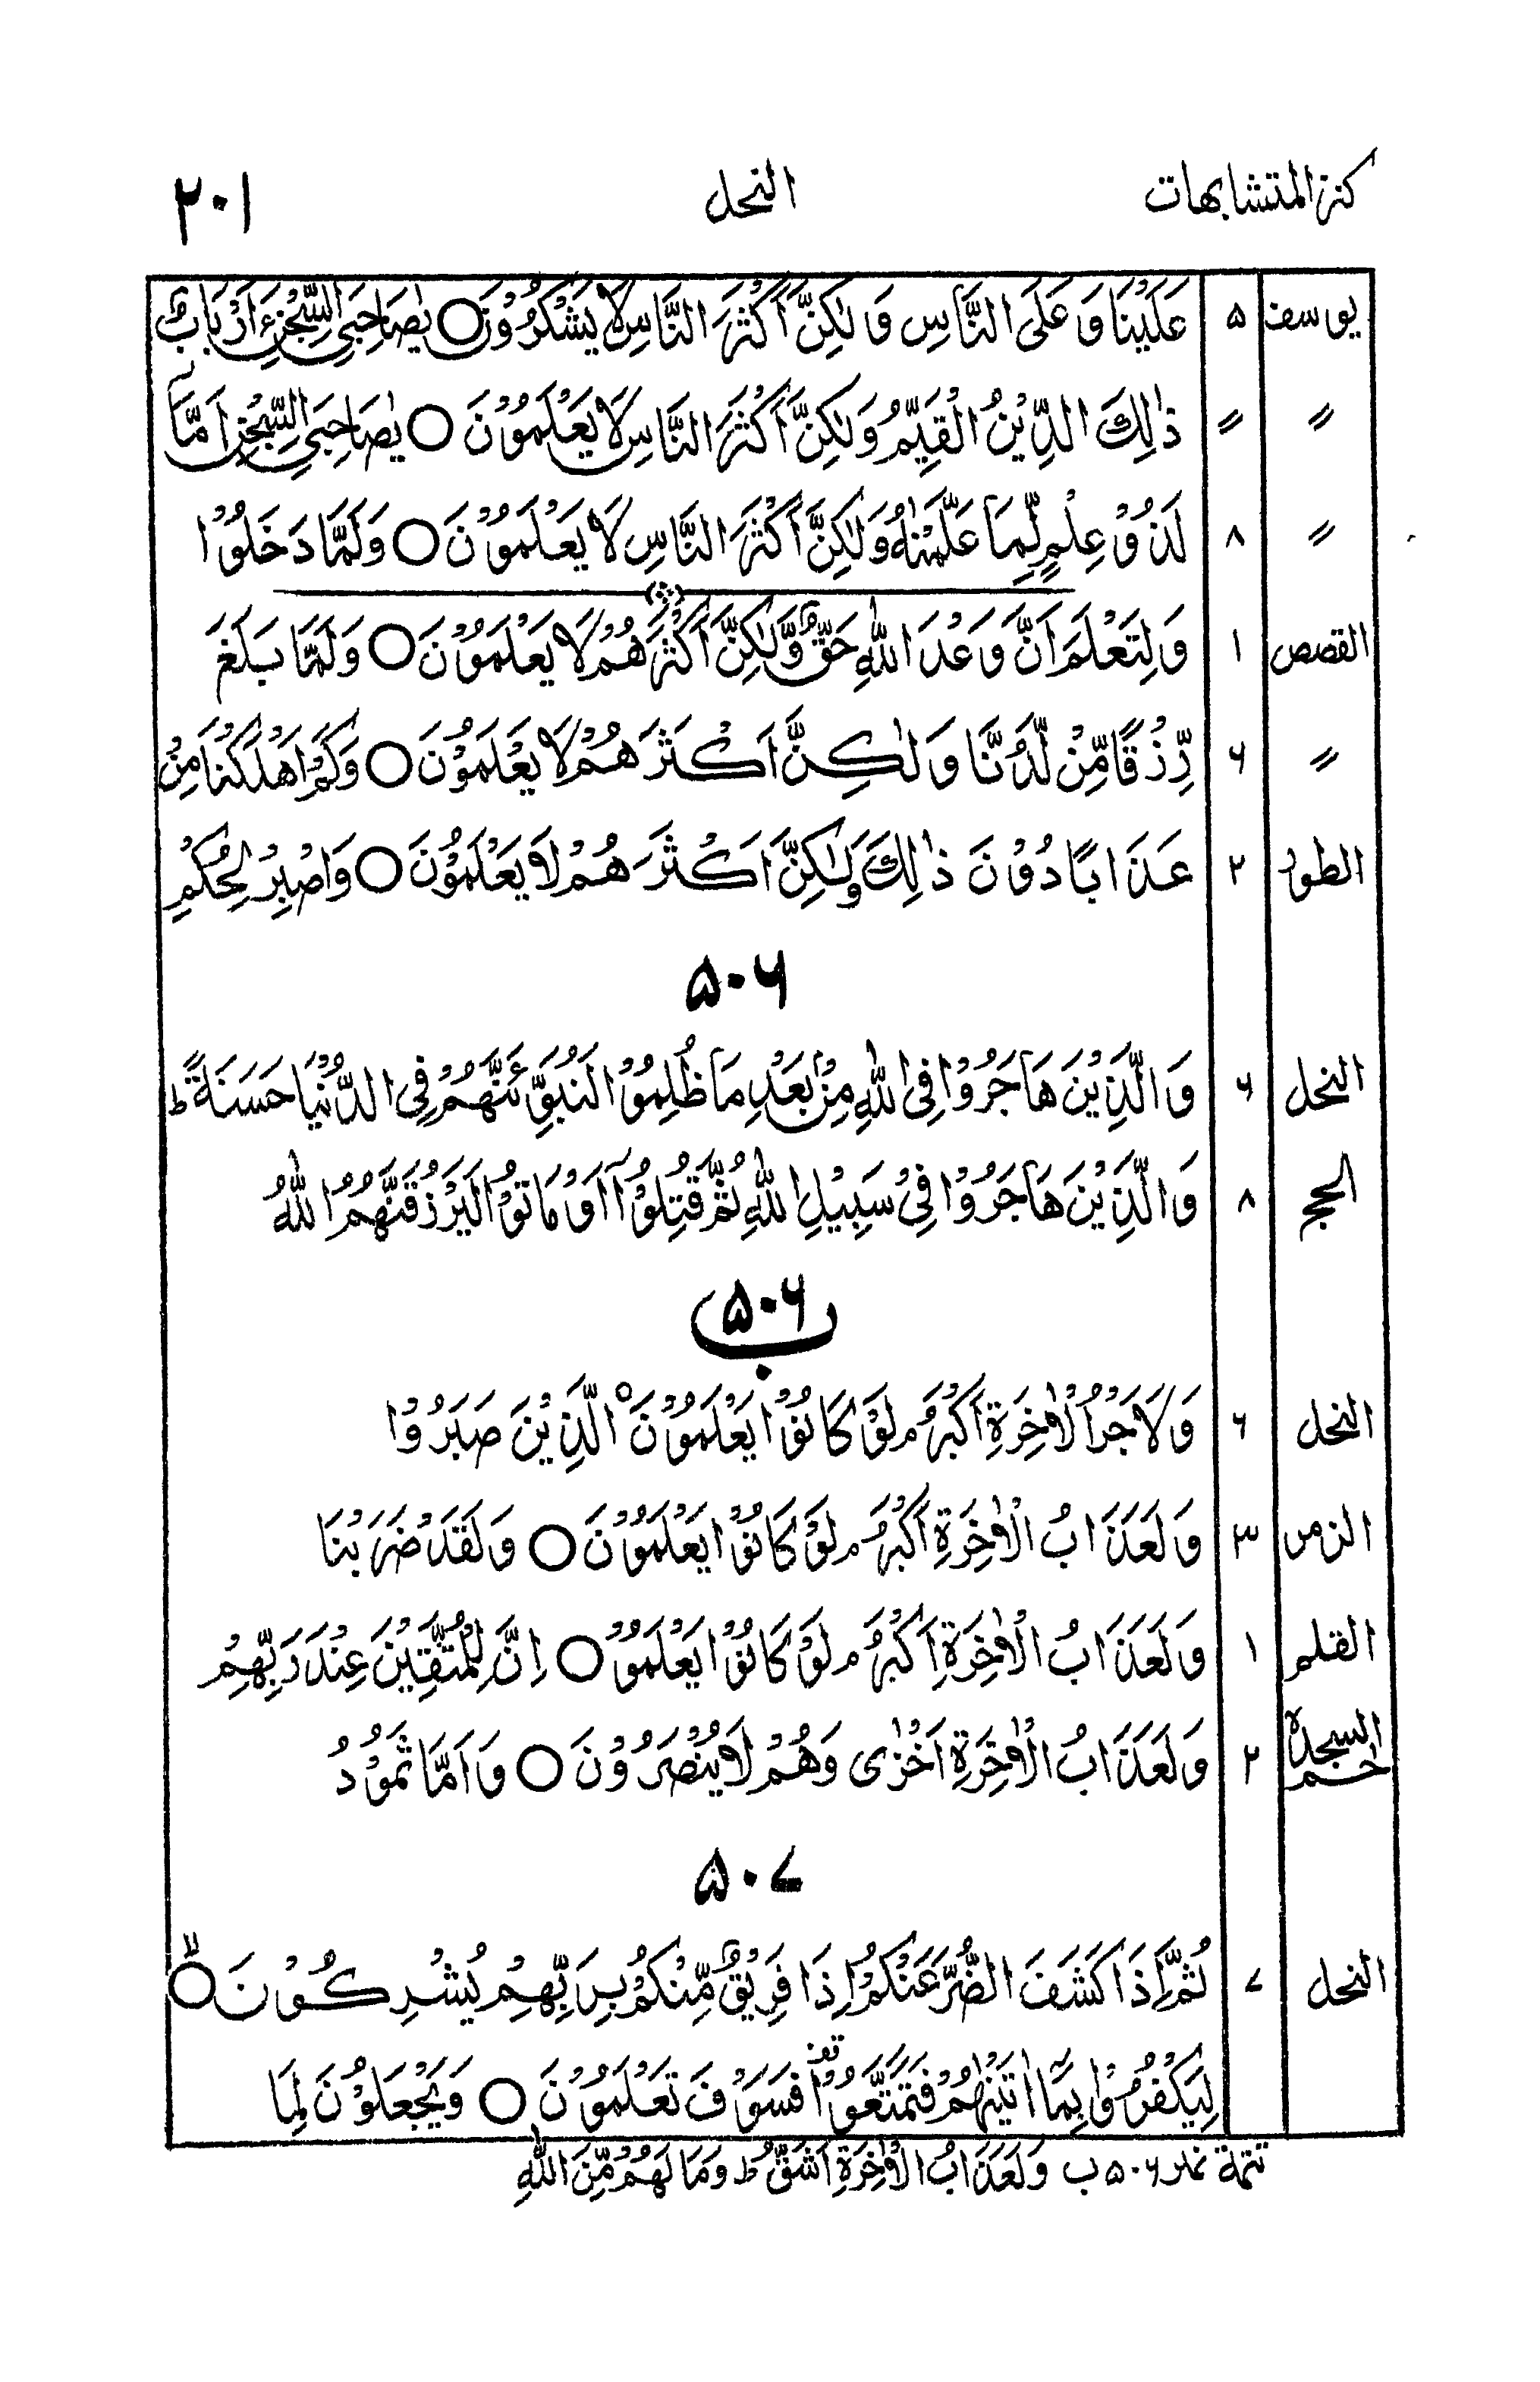 كنز المتشابهات النحل ٢٠١
يوسف ۵ عَلَيْنَا وَ عَلَى النَّاسِ وَ لٰكِنَّ اَكْثَرَ النَّاسِ لَا يَشْكُرُوْنَ ○ يٰصَاحِبَيِ السِّجْنِ ءَاَرْبَابٌ
〃 〃 ذٰلِكَ الدِّيْنُ الْقَيِّمُ وَلٰكِنَّ اَكْثَرَ النَّاسِ لَا يَعْلَمُوْنَ ○ يٰصَاحِبَيِ السِّجْنِ اَمَّا
〃 ٨ لَذُوْ عِلْمٍ لِّمَا عَلَّمْنٰهُ وَلٰكِنَّ اَكْثَرَ النَّاسِ لَا يَعْلَمُوْنَ ○ وَلَمَّا دَخَلُوْا
القصص ١ وَلِتَعْلَمَ اَنَّ وَعْدَ اللّٰهِ حَقٌّ وَّلٰكِنَّ اَكْثَرَهُمْ لَا يَعْلَمُوْنَ ○ وَلَمَّا بَلَغَ
〃 ۶ رِّزْقًا مِّنْ لَّدُنَّا وَلٰكِنَّ اَكْثَرَهُمْ لَا يَعْلَمُوْنَ ○ وَكَمْ اَهْلَكْنَا مِنْ
الطور ٢ عَذَابًا دُوْنَ ذٰلِكَ وَلٰكِنَّ اَكْثَرَهُمْ لَا يَعْلَمُوْنَ ○ وَاصْبِرْ لِحُكْمِ
۵٠۶
النحل ۶ وَالَّذِيْنَ هَاجَرُوْا فِى اللّٰهِ مِنْۢ بَعْدِ مَا ظُلِمُوْا لَنُبَوِّئَنَّهُمْ فِى الدُّنْيَا حَسَنَةً ط
الحج ٨ وَالَّذِيْنَ هَاجَرُوْا فِىْ سَبِيْلِ اللّٰهِ ثُمَّ قُتِلُوْٓا اَوْ مَاتُوْا لَيَرْزُقَنَّهُمُ اللّٰهُ
۵٠۶ ب
النحل ۶ وَلَاَجْرُ الْاٰخِرَةِ اَكْبَرُ م لَوْ كَانُوْا يَعْلَمُوْنَ ۙ الَّذِيْنَ صَبَرُوْا
الزمر ٣ وَلَعَذَابُ الْاٰخِرَةِ اَكْبَرُ م لَوْ كَانُوْا يَعْلَمُوْنَ ○ وَلَقَدْ ضَرَبْنَا
القلم ١ وَلَعَذَابُ الْاٰخِرَةِ اَكْبَرُ م لَوْ كَانُوْا يَعْلَمُوْ ○ اِنَّ لِلْمُتَّقِيْنَ عِنْدَ رَبِّهِمْ
حٰم السجدة ٢ وَلَعَذَابُ الْاٰخِرَةِ اَخْزٰى وَهُمْ لَا يُنْصَرُوْنَ ○ وَاَمَّا ثَمُوْدُ
۵٠٧
النحل ٧ ثُمَّ اِذَا كَشَفَ الضُّرَّ عَنْكُمْ اِذَا فَرِيْقٌ مِّنْكُمْ بِرَبِّهِمْ يُشْرِكُوْنَ ○ۙ
لِيَكْفُرُوْا بِمَآ اٰتَيْنٰهُمْ فَتَمَتَّعُوْا قف فَسَوْفَ تَعْلَمُوْنَ ○ وَيَجْعَلُوْنَ لِمَا
تتمة نمبر ۵٠۶ ب وَلَعَذَابُ الْاٰخِرَةِ اَشَقُّ ط وَمَا لَهُمْ مِّنَ اللّٰهِ